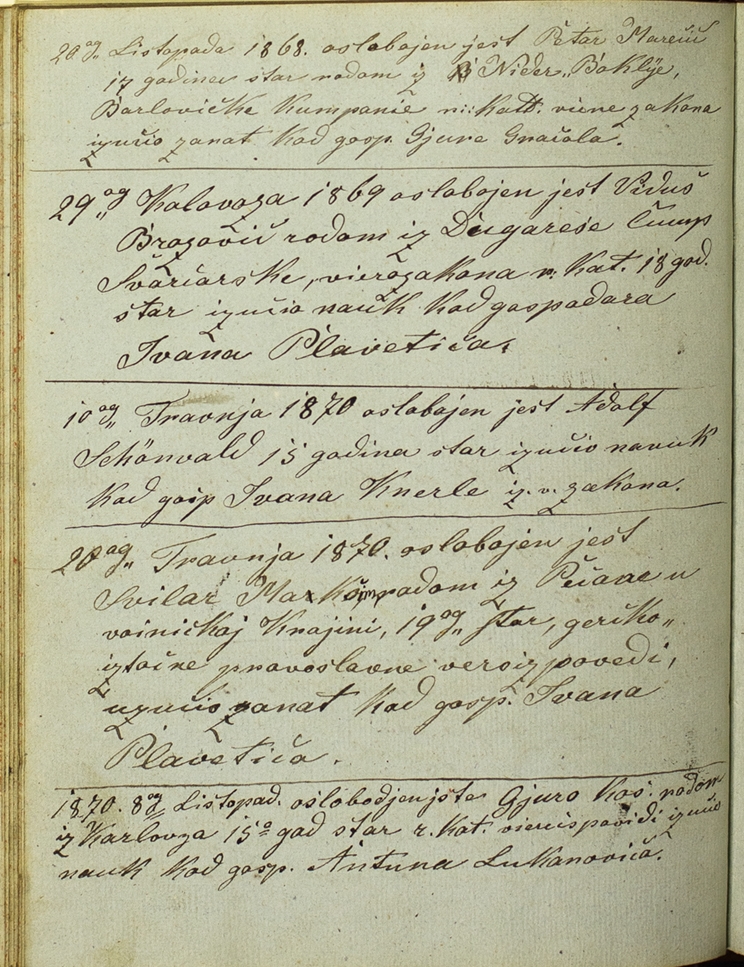 20og„ Listopada 1868. oslobojen jest Petar Marečić
17 godina star rodom iz Nider„Boklje,
Barlovičke Kumpanie ri: Katt. vierezakona
izučio zanat Kod gosp. Gjure Gračola.
29og„ Kolovoza 1869 oslobojen jest Viduš
Brozović rodom iz Dugarese Cump
Švarčarske, vierozakona r: Kat. 18 god.
star izučio nauk Kod gospodara
Ivana Plavetića.
10og„ Travnja 1870 oslobojen jest Adolf
Schönvald 15 godina star izučio nauk
Kod gosp Ivana Knerle iz. v. zakona.
20og„ Travnja 1870. oslobojen jest
Svilar rodom iz Pećane u
voiničkoj Krajini, 19og„ star, gerčko„
iztočne pravoslavne veroizpovedi,
izučio zanat Kod gosp. Ivana
Plavetića.
1870. 8og Listopad. oslobodjenjste Gjuro Kos. rodom
iz Karlovza 15o god star r. Kat. vieruispovidi izučio
nauk Kod gosp. Antuna Lukanovića.